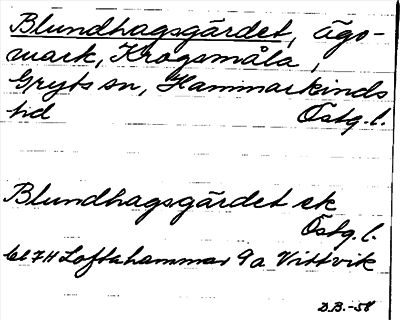 Blundhagsgärdet, ägo-
mark, Krogsmåla,
Gryts sn, Hammarkinds
hd Östg.l.
Blundhagsgärdet ek
Östg.l.
bl 7H Loftahammar 9a Vittvik
D.B.-58